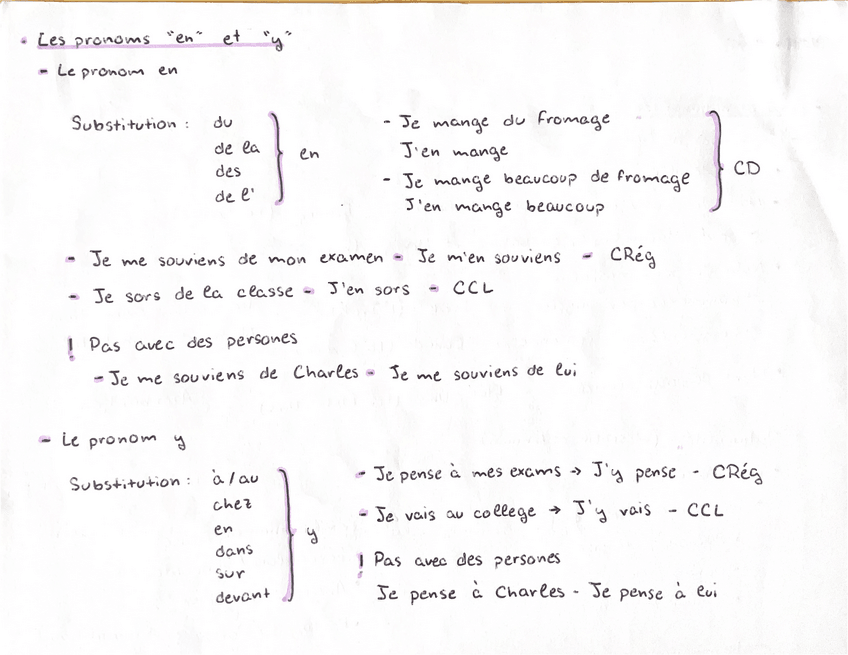 · Les pronoms "en" et "y"
- Le pronom en
Substitution : du
de la
des
de l'
en
- Je mange du fromage
J'en mange
- Je mange beaucoup de fromage
J'en mange beaucoup
CD
- Je me souviens de mon examen - Je m'en souviens - CRég
- Je sors de la classe - J'en sors - CCL
! Pas avec des persones
- Je me souviens de Charles - Je me souviens de lui
- Le pronom y
Substitution : à / au
chez
en
dans
sur
devant
y
- Je pense à mes exams → J'y pense - CRég
- Je vais au college → J'y vais - CCL
! Pas avec des persones
Je pense à Charles - Je pense à lui